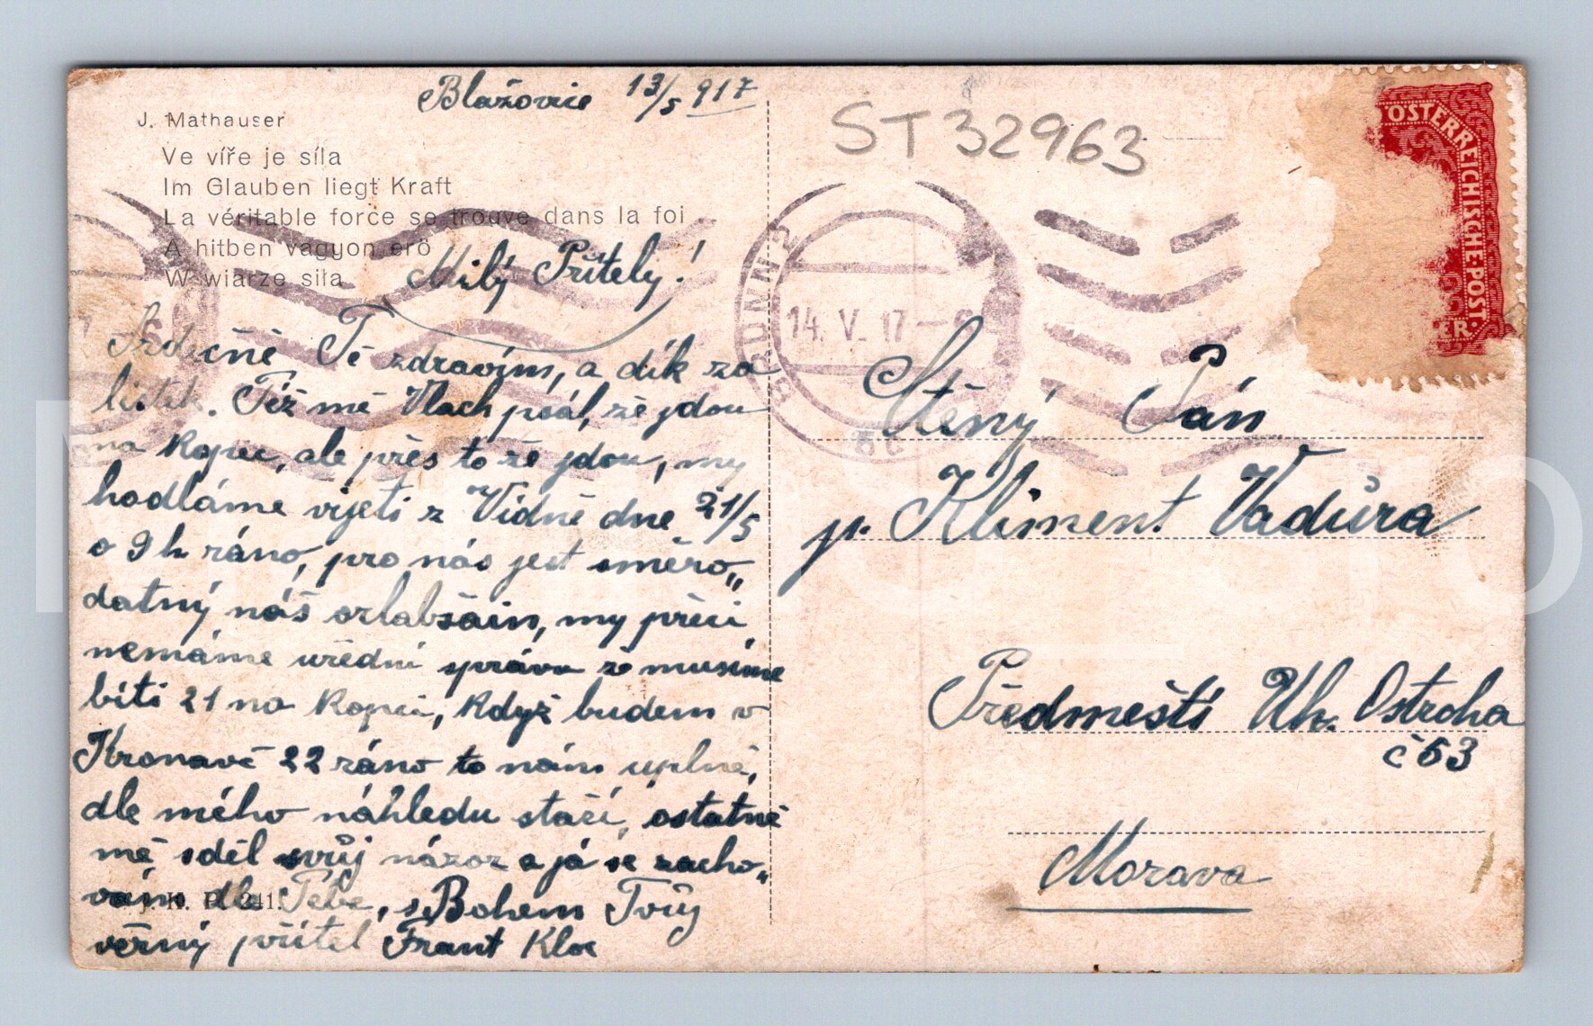 Blažovice 13/5 917
J. Mathauser
Ve víře je síla
Im Glauben liegt Kraft
La véritable force se trouve dans la foi
A hitben vagyon erö
W wiarze siła
Milý Přítely!
Srdečně Tě zdravím, a dík za
lístek. Též mě Vlach psál, že jdou
na kopec, ale přes to že jdou, my
hodláme vijeti z Vídně dne 21/5
o 9 h ráno, pro nás jest směro„
datný náš orlabšain, my přeci
nemáme uřední správu že musíme
bíti 21 na kopci, když budem v
22 ráno to nám uplně,
dle mého náhledu stačí, ostatně
mě sděl svůj názor a já se zacho„
vám dle Tebe, s Bohem Tvůj
věrný přítel Frant
241.
ST 32963
ÖSTERREICHISCHE·POST·
BRÜNN 2
14. V. 17
Ctěný Pán
p. Kliment Vaďůra
Předmeští Uh. Ostroha
č 53
Morava